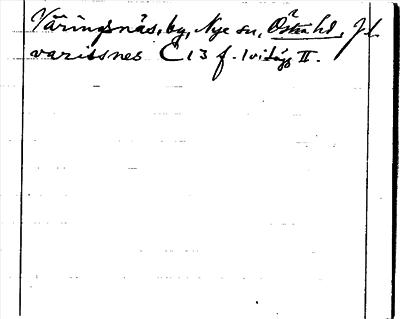 Väringsnäs, by, Nye sn, Östra hd, Jl.
varissnes C 13 f. 1 II.